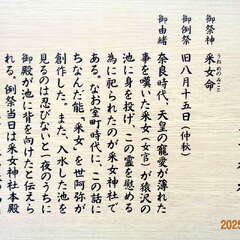 御祭神 采女命
うねめのみこと
御例祭 旧八月十五日(仲秋)
御由緒 奈良時代、天皇の寵愛が薄れた
事を嘆いた采女(女官)が猿沢の
池に身を投げ、この霊を慰める
為に祀られたのが采女神社で
ある。なお室町時代に、この話に
ちなんだ能、「采女」を世阿弥が
創作した。また、入水した池を
見るのは忍びないと一夜のうちに
御殿が池に背を向けたと伝えら
れる。例祭当日は采女神社本殿
2025